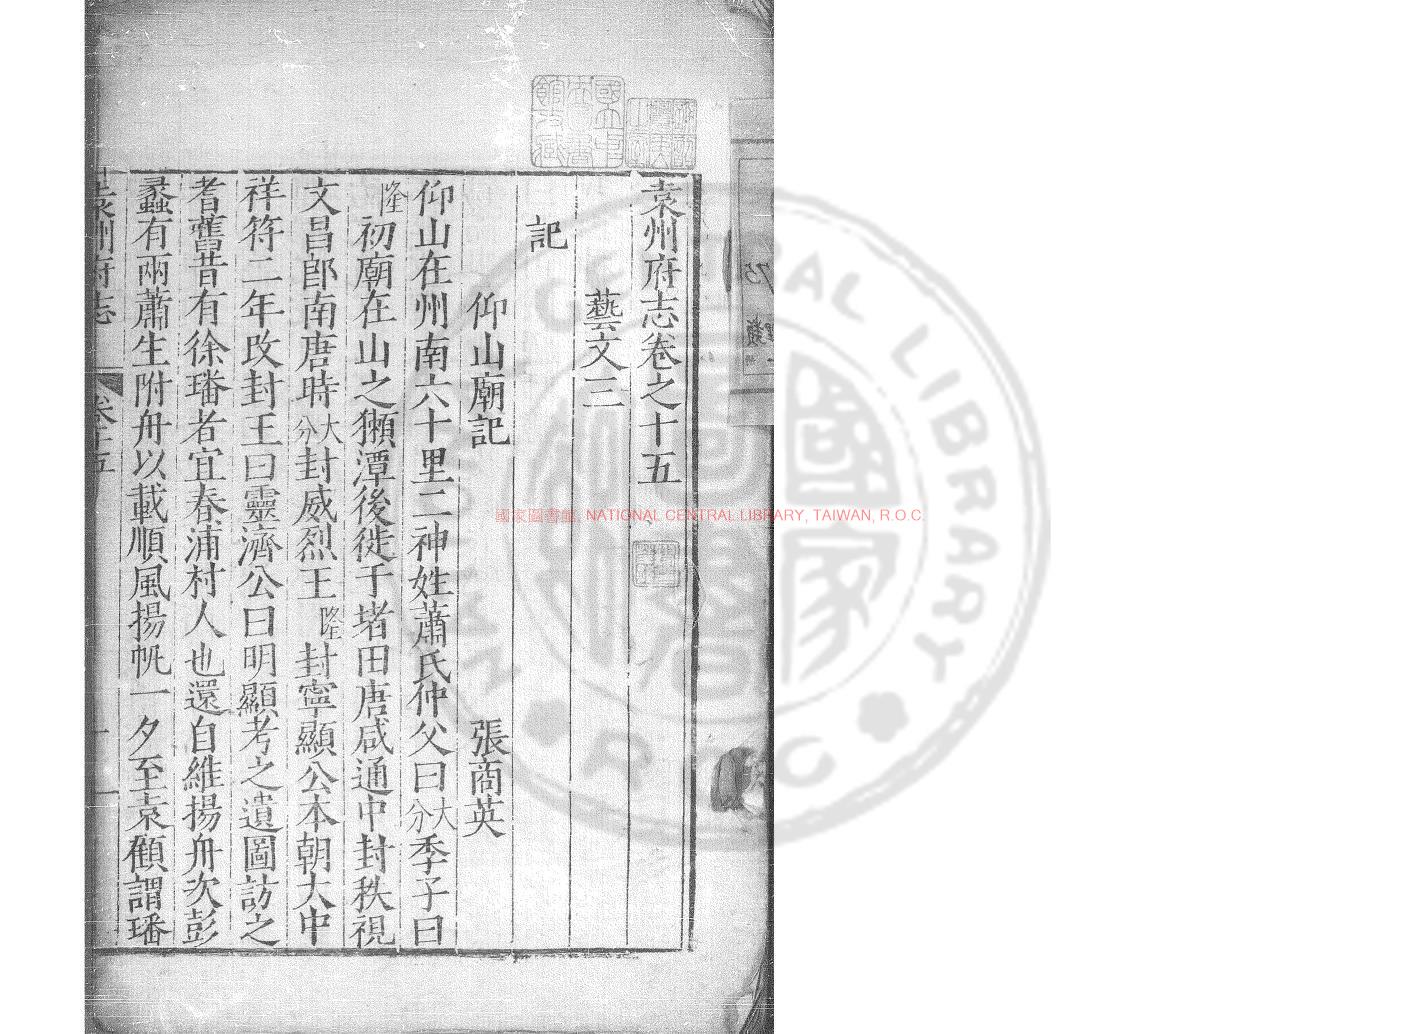 袁州府志卷之十五
藝文三
記
仰山廟記 張商英
仰山在州南六十里二神姓蕭氏仲父曰大分季子曰
隆初廟在山之獺潭後徙于堵田唐咸通中封秩視
文昌郎南唐時大分封威烈王隆封寧顯公本朝大中
祥符二年改封王曰靈濟公曰明顯考之遺圖訪之
耆舊昔有徐璠者宜春浦村人也還自維揚舟次彭
蠡有兩蕭生附舟以載順風揚帆一夕至袁顧謂璠
袁州府志 卷十五 一
國家圖書館, NATIONAL CENTRAL LIBRARY, TAIWAN, R.O.C.
CENTRAL LIBRARY
R.O.C